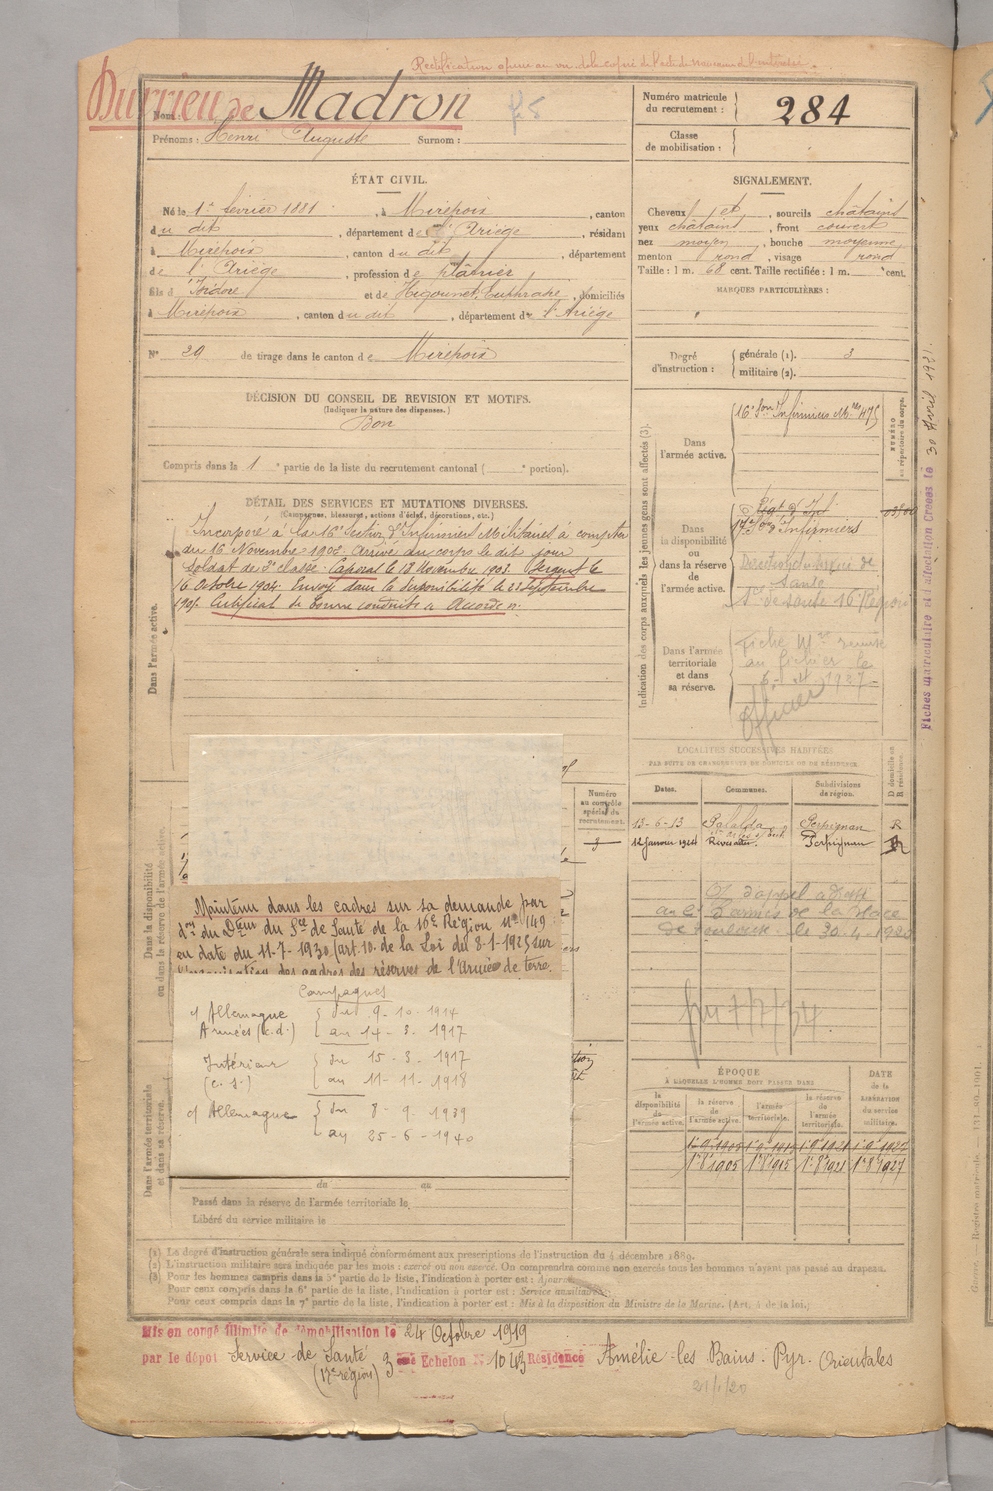 Rectification opérée au vu de la copie de l'acte de naissance de l'intéressé.
Durrieu de Madron
Nom :
Prénoms : Henri Auguste Surnom :
Numéro matricule du recrutement : 284
Classe de mobilisation :
ÉTAT CIVIL.
Né le 1er février 1881, à Mirepoix, canton
du dit, département de l'Ariège, résidant
à Mirepoix, canton du dit, département
de l'Ariège, profession de plâtrier
fils d'Isidore et de Higounet, Euphrasie, domiciliés
à Mirepoix, canton du dit, département de l'Ariège
N° 29 de tirage dans le canton de Mirepoix
SIGNALEMENT.
Cheveux et, sourcils châtains
yeux châtains, front couvert
nez moyen, bouche moyenne
menton rond, visage rond
Taille : 1 m. 68 cent. Taille rectifiée : 1 m. cent.
MARQUES PARTICULIÈRES :
Degré d'instruction : générale (1). 3
militaire (2).
DÉCISION DU CONSEIL DE REVISION ET MOTIFS.
(Indiquer la nature des dispenses.)
Bon
Compris dans la 1e partie de la liste du recrutement cantonal ( e portion).
DÉTAIL DES SERVICES ET MUTATIONS DIVERSES.
(Campagnes, blessures, actions d'éclat, décorations, etc.)
Incorporé à la 16e Section d'Infirmiers Militaires à compter
du 16 Novembre 1902. Arrivé au corps le dit jour
Soldat de 2e classe. Caporal le 18 Novembre 1903. Sergent le
16 Octobre 1904. Envoyé dans la disponibilité le 23 Septembre
1905. Certificat de bonne conduite "Accordé".
Dans l'armée active.
Indication des corps auxquels les jeunes gens sont affectés (3).
Dans l'armée active.
16e Son Infirmiers Mres 475
NUMÉRO au répertoire du corps.
Dans la disponibilité ou dans la réserve de l'armée active.
Régt d'Inf
17e Son d'Infirmiers
Direction du Service de Santé
Sce de santé 16e Région
Dans l'armée territoriale et dans sa réserve.
Fiche Mle remise
au fichier le
1927
Officier
Fiches matricule et d'affectation Créées le 30 Avril 1921.
LOCALITÉS SUCCESSIVES HABITÉES
PAR SUITE DE CHANGEMENTS DE DOMICILE OU DE RÉSIDENCE.
Dates. Communes. Subdivisions de région. D domicile ou R résidence.
13-6-13 Palalda Perpignan R
12 Janvier 1924 Rivesaltes Perpignan R
de la Place
de Toulouse le 30-4-1920
Numéro au contrôle spécial du recrutement.
Dans la disponibilité ou dans la réserve de l'armée active.
Maintenu dans les cadres sur sa demande par
don du Dteur du Sce de Santé de la 16e Région No 149
en date du 11-7-1930 (art. 10. de la Loi du 8-1-1925 sur
l'organisation des cadres des réserves de l'Armée de terre.
Campagnes
c/ Allemagne { du 9-10-1914
Armées (c.d.) { au 14-3-1917
Intérieur { du 15-3-1917
(c. s.) { au 11-11-1918
c/ Allemagne { du 8-9-1939
au 25-6-1940
Dans l'armée territoriale et dans sa réserve.
du au
Passé dans la réserve de l'armée territoriale le
Libéré du service militaire le
ÉPOQUE
À LAQUELLE L'HOMME DOIT PASSER DANS
la disponibilité de l'armée active. la réserve de l'armée active. l'armée territoriale. la réserve de l'armée territoriale.
DATE de la LIBÉRATION du service militaire.
1er 8bre 1905 1er 8bre 1915 1er 8bre 1921 1er 8bre 1927
(1) Le degré d'instruction générale sera indiqué conformément aux prescriptions de l'instruction du 4 décembre 1889.
(2) L'instruction militaire sera indiquée par les mots : exercé ou non exercé. On comprendra comme non exercés tous les hommes n'ayant pas passé au drapeau.
(3) Pour les hommes compris dans la 5e partie de la liste, l'indication à porter est : Ajourné.
Pour ceux compris dans la 6e partie de la liste, l'indication à porter est : Service auxiliaire.
Pour ceux compris dans la 7e partie de la liste, l'indication à porter est : Mis à la disposition du Ministre de la Marine. (Art. 4 de la loi.)
Mis en congé illimité de démobilisation le 24 Octobre 1919
par le dépôt Service de Santé 3eme Échelon N° 1043 Résidence Amélie-les-Bains. Pyr. Orientales
(17e région)